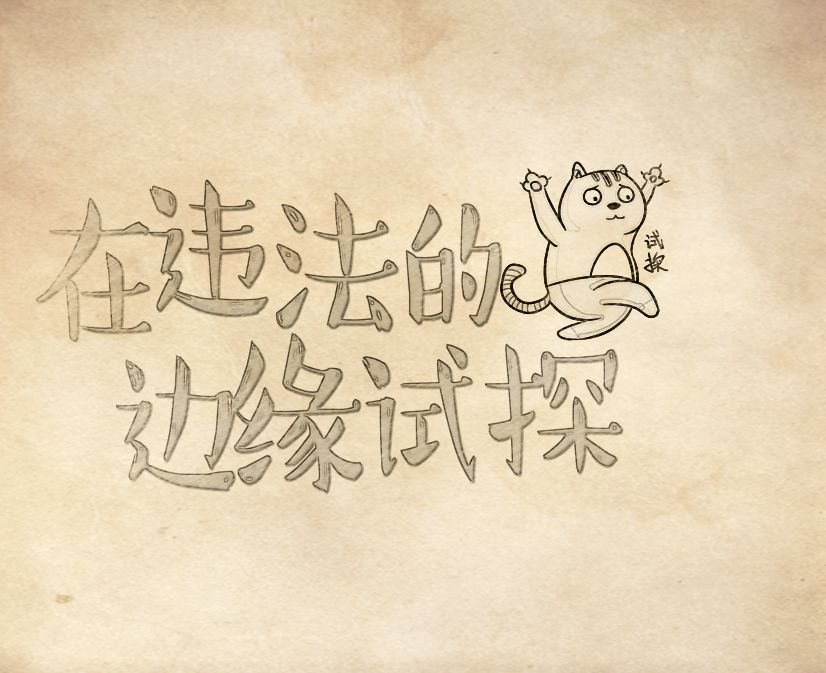 在违法的
试探
边缘试探